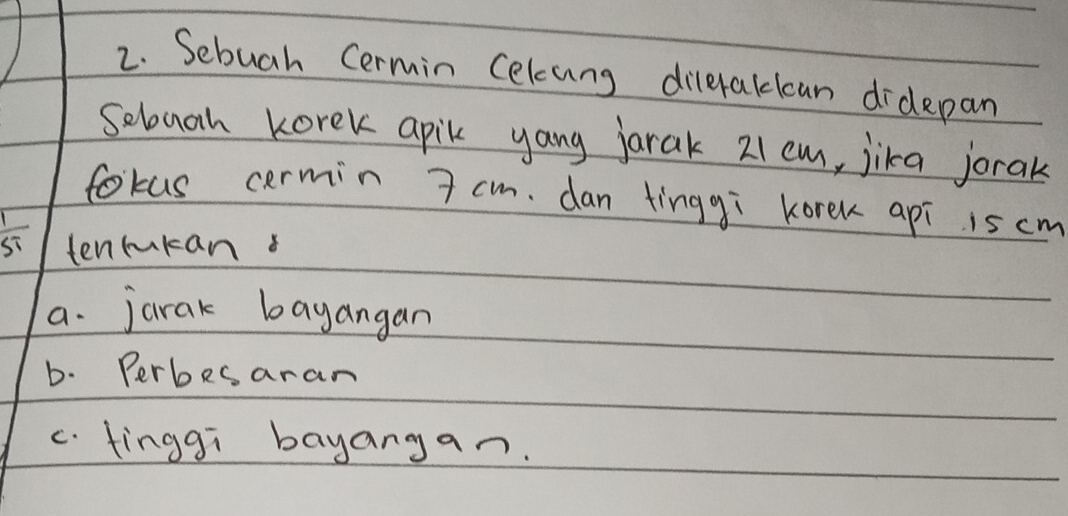 2. Sebuah Cermin Cekung diletakkan didepan
Sebuah korek apik yang jarak 21 cm, jika jarak
fokus cermin 7 cm. dan tinggi korek api 15 cm
tentukan :
a. jarak bayangan
b. Perbesaran
c. tinggi bayangan.